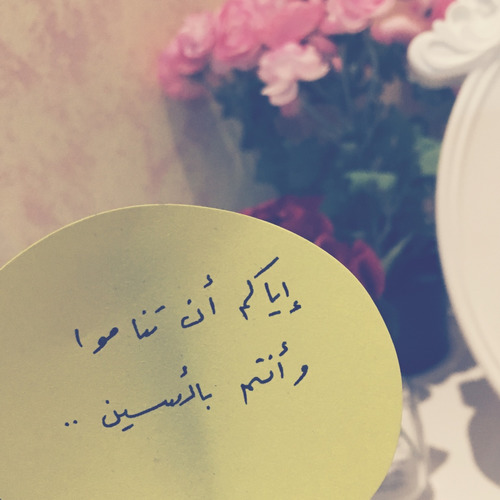 إياكم أن تناموا
وأنتم بائسين ..